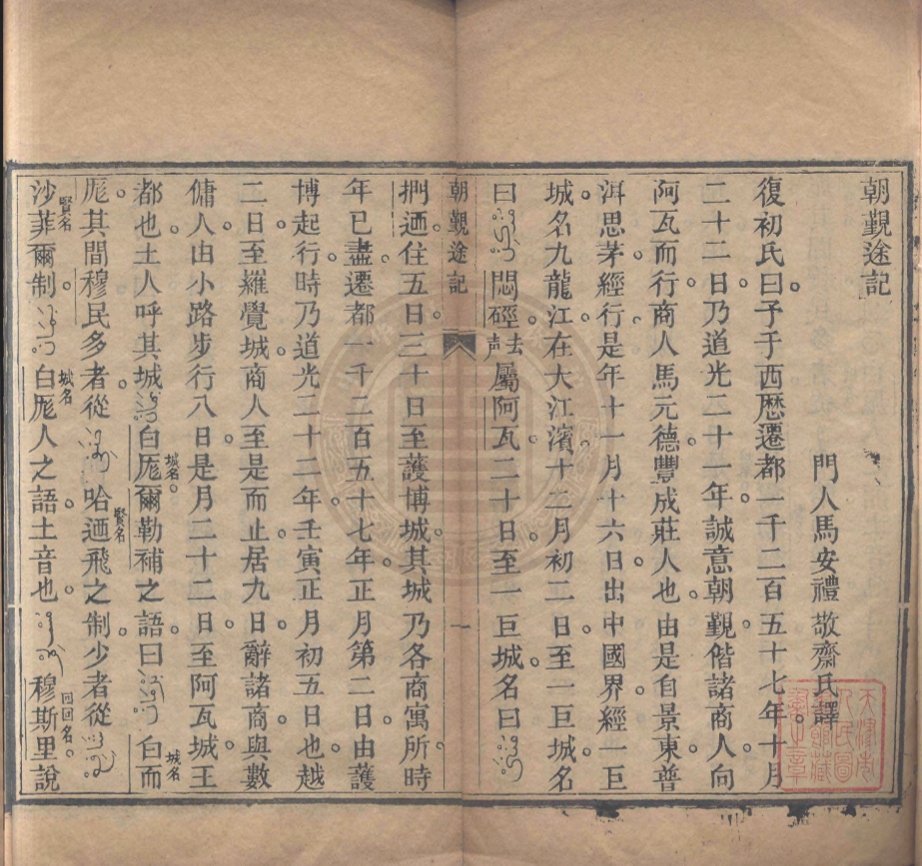 朝覲途記
門人馬安禮敬齋氏譯
復初氏曰予于西歷遷都一千二百五十七年十月
二十二日乃道光二十一年誠意朝覲偕諸商人向
阿瓦而行商人馬元德豐成莊人也由是自景東普
洱思茅經行是年十一月十六日出中國界經一巨
城名九龍江在大江濱十二月初二日至一巨城名
曰悶硜去声屬阿瓦二十日至一巨城名曰
朝覲途記 一
捫迺住五日三十日至護博城其城乃各商寓所時
年已盡遷都一千二百五十七年正月第二日由護
博起行時乃道光二十二年壬寅正月初五日也越
二日至羅覺城商人至是而止居九日辭諸商與數
傭人由小路步行八日是月二十二日至阿瓦城王
都也土人呼其城白厖爾勒補城名之語曰白而城名
厖其間穆民多者從哈迺飛賢名之制少者從
沙菲爾賢名制白厖城名人之語土音也穆斯里回回名說
天津市人民圖書館藏書之章